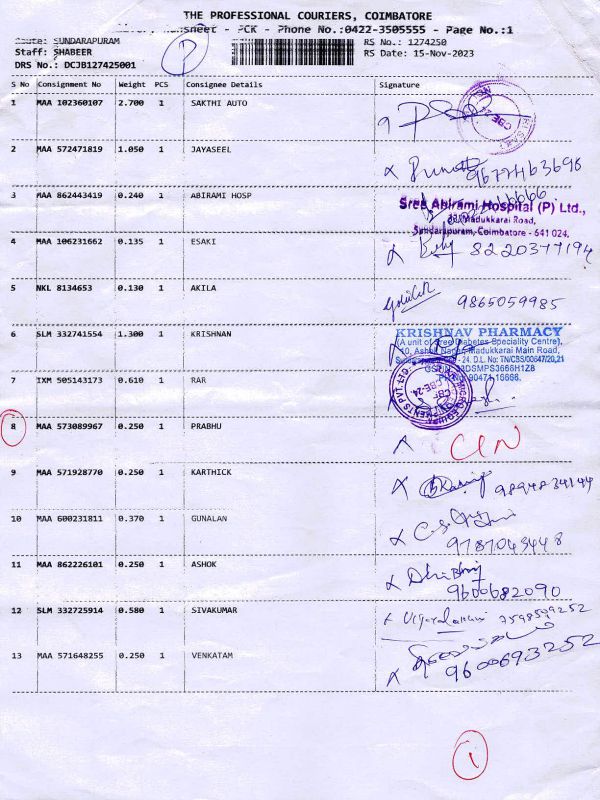 THE PROFESSIONAL COURIERS, COIMBATORE
- PCK - Phone No.:0422-3505555 - Page No.:1
Route: SUNDARAPURAM
RS No.: 1274250
Staff: SHABEER
RS Date: 15-Nov-2023
DRS No.: DCJB127425001
P
S No Consignment No Weight PCS Consignee Details Signature
1 MAA 102360107 2.700 1 SAKTHI AUTO
2 MAA 572471819 1.050 1 JAYASEEL
3 MAA 862443419 0.240 1 ABIRAMI HOSP
Sree Abirami Hospital (P) Ltd.,
33, Madukkarai Road,
Sundarapuram, Coimbatore - 641 024.
4 MAA 106231662 0.135 1 ESAKI 8220377194
5 NKL 8134653 0.130 1 AKILA 9865059985
6 SLM 332741554 1.300 1 KRISHNAN
KRISHNAV PHARMACY
(A unit of Sree Diabetes Speciality Centre),
10, Ashok Nagar, Madukkarai Main Road,
7 IXM 505143173 0.610 1 RAR
8 MAA 573089967 0.250 1 PRABHU
9 MAA 571928770 0.250 1 KARTHICK 9894834144
10 MAA 600231811 0.370 1 GUNALAN
11 MAA 862226101 0.250 1 ASHOK 9600682090
12 SLM 332725914 0.580 1 SIVAKUMAR 7598599252
13 MAA 571648255 0.250 1 VENKATAM 9600693252
1